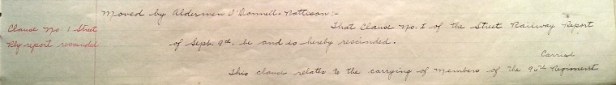 Moved by Alderman O'Connell - Mattison:-
Clause No. 1 Street
Rly report rescinded
That Clause No. 1 of the Street Railway Report
of Sept 9th. be and is hereby rescinded.
Carried
This clause relates to the carrying of members of the 90th Regiment